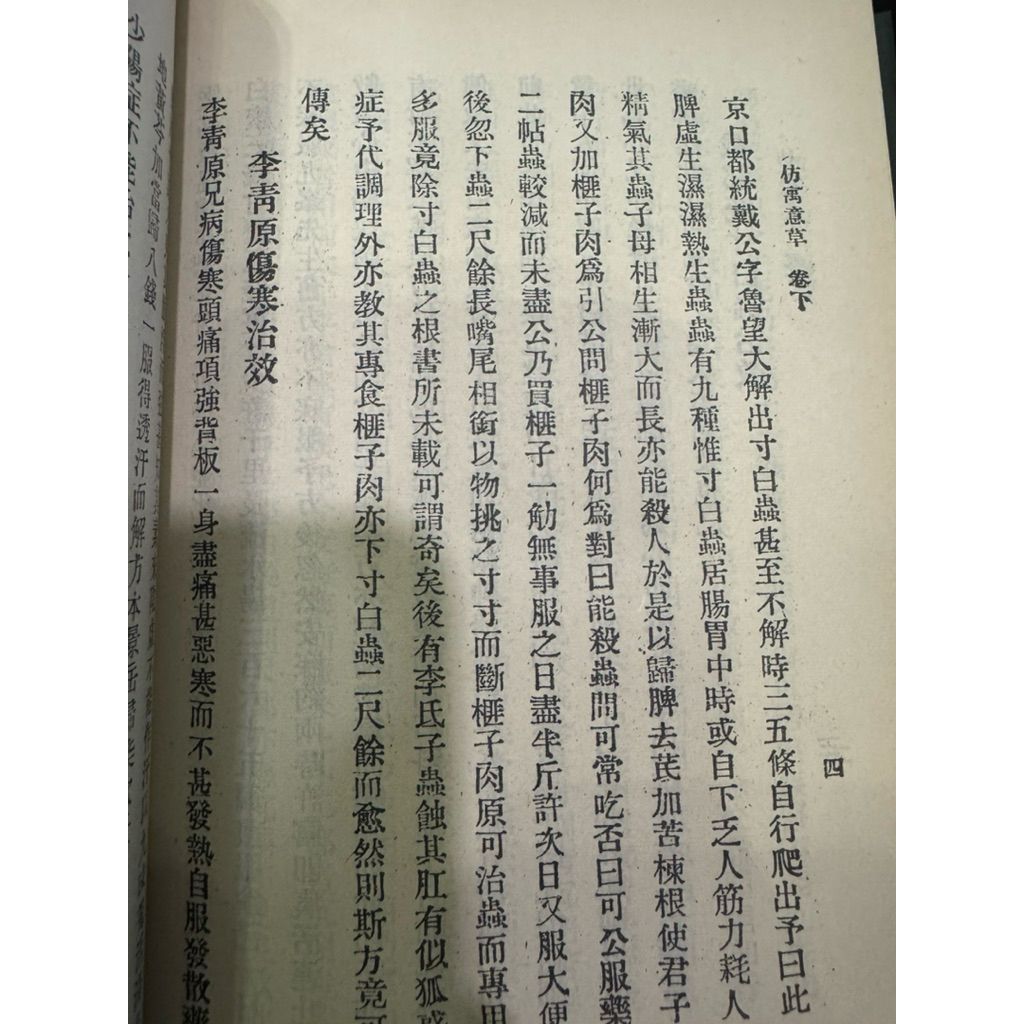 仿寓意草 卷下
四
京口都統戴公字魯望大解出寸白蟲甚至不解時三五條自行爬出予曰此
脾虛生濕濕熱生蟲蟲有九種惟寸白蟲居腸胃中時或自下乏人筋力耗人
精氣其蟲子母相生漸大而長亦能殺人於是以歸脾去芪加苦楝根使君子
肉又加榧子肉為引公問榧子肉何為對曰能殺蟲問可常吃否曰可公服藥
二帖蟲較減而未盡公乃買榧子一觔無事服之日盡半斤許次日又服大便
後忽下蟲二尺餘長嘴尾相銜以物挑之寸寸而斷榧子肉原可治蟲而專用
多服竟除寸白蟲之根書所未載可謂奇矣後有李氏子蟲蝕其肛有似狐惑
症予代調理外亦教其專食榧子肉亦下寸白蟲二尺餘而愈然則斯方竟可
傳矣
李青原傷寒治效
李青原兄病傷寒頭痛項強背板一身盡痛甚惡寒而不甚發熱自服發散藥
加當歸八錢一服得透汗而解方本景岳